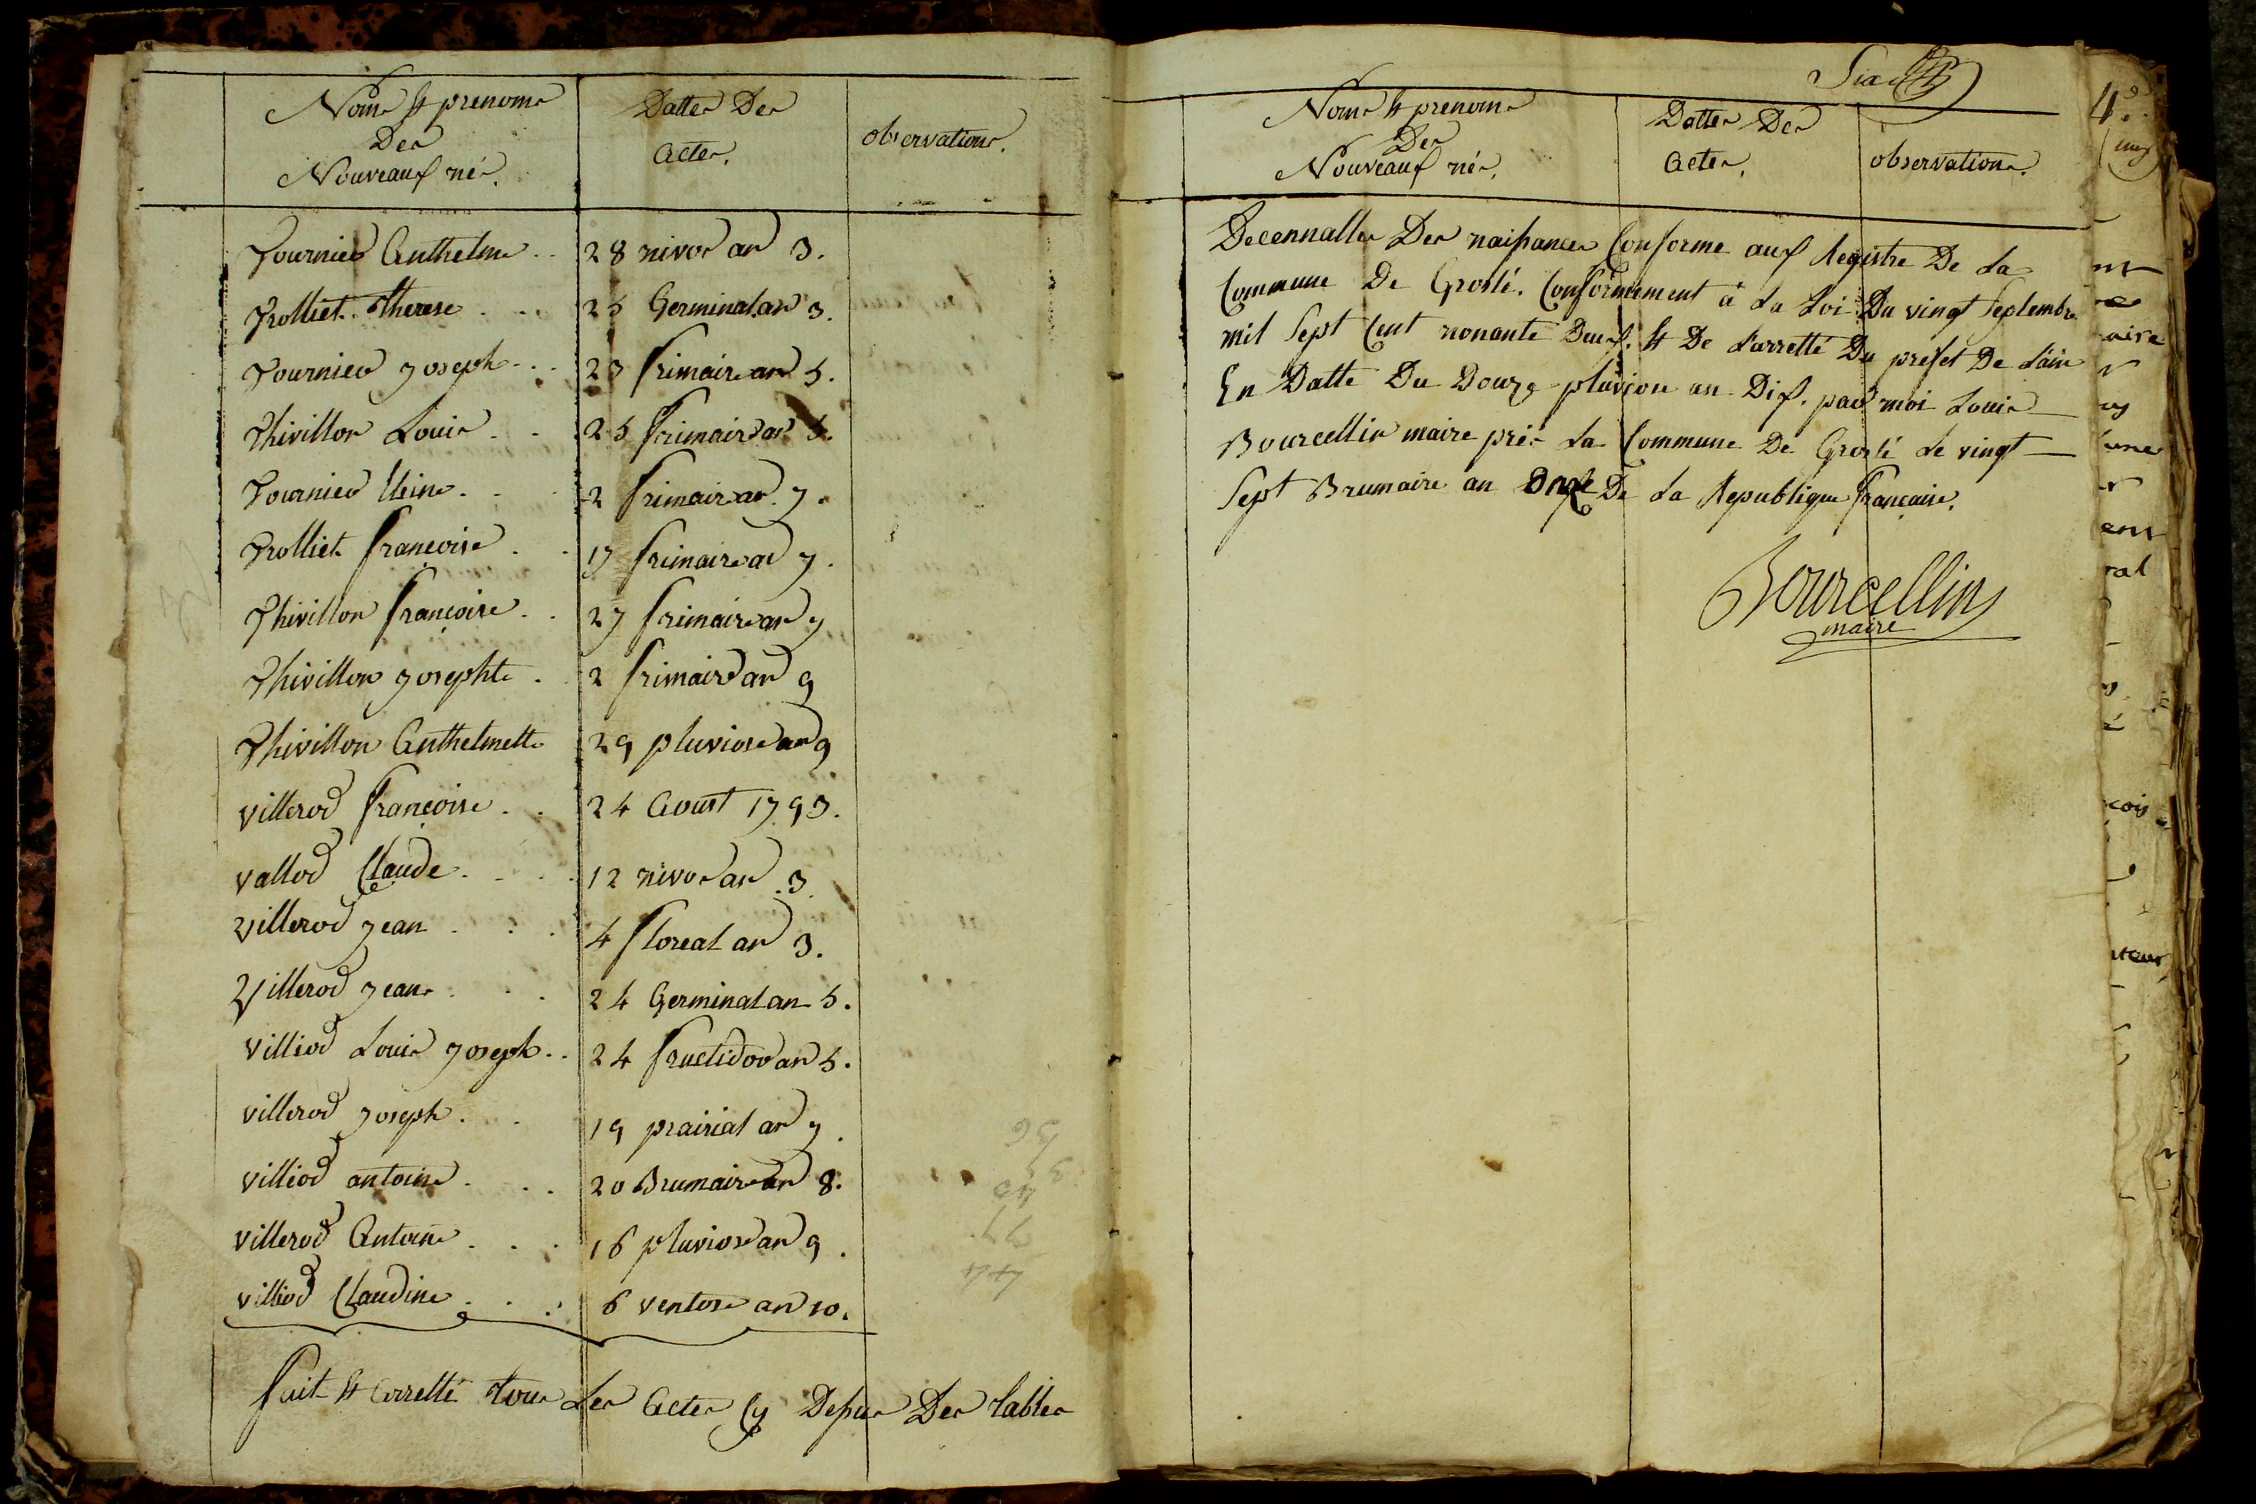 Noms et prenoms
Des
Nouveaux nés.
Dattes Des
actes.
observations.
Tournier Anthelme . . 28 nivos an 3.
Trolliet Therese . . . 25 Germinal an 3.
Tournier joseph . . . 23 frimaire an 5.
Thivillon Louis . . 25 frimaire an 5.
Tournier Reine . . . 2 frimaire an 7.
Trolliet françoise . . 17 frimaire an 7.
Thivillon françoise . . 27 frimaire an 7
Thivillon josephte . 2 frimaire an 9
Thivillon Anthelmette 29 pluviose an 9
villerod françoise . . 24 Aoust 1793.
vallod Claude . . . . 12 nivos an 3
villerod jean . . . 4 floreal an 3.
Villerod jean . . . 24 Germinal an 5.
villiod Louis joseph . . 24 fructidor an 5.
villerod joseph . . 19 prairial an 7.
villiod antoine . . . 20 Brumaire an 8.
villerod Antoine . . . 16 pluviose an 9.
villiod Claudine . . . 6 ventose an 10.
fait et arretté tous Les Actes Cy Depus Des tables
Noms et prenoms
Des
Nouveaux nés.
Dattes Des
actes.
observations.
Decennalles Des naissances Conforme aux Registre De La
Commune De Groslé. Conformement à La Loi Du vingt Septembre
mil Sept Cent nonante Deux. et De L'arretté Du préfet De L'ain
En Datte Du Douze pluviose an Dix. par moi Louis
Bourcellin maire près La Commune De Groslé Le vingt
Sept Brumaire an onze De La Republique française.
Bourcellin
maire